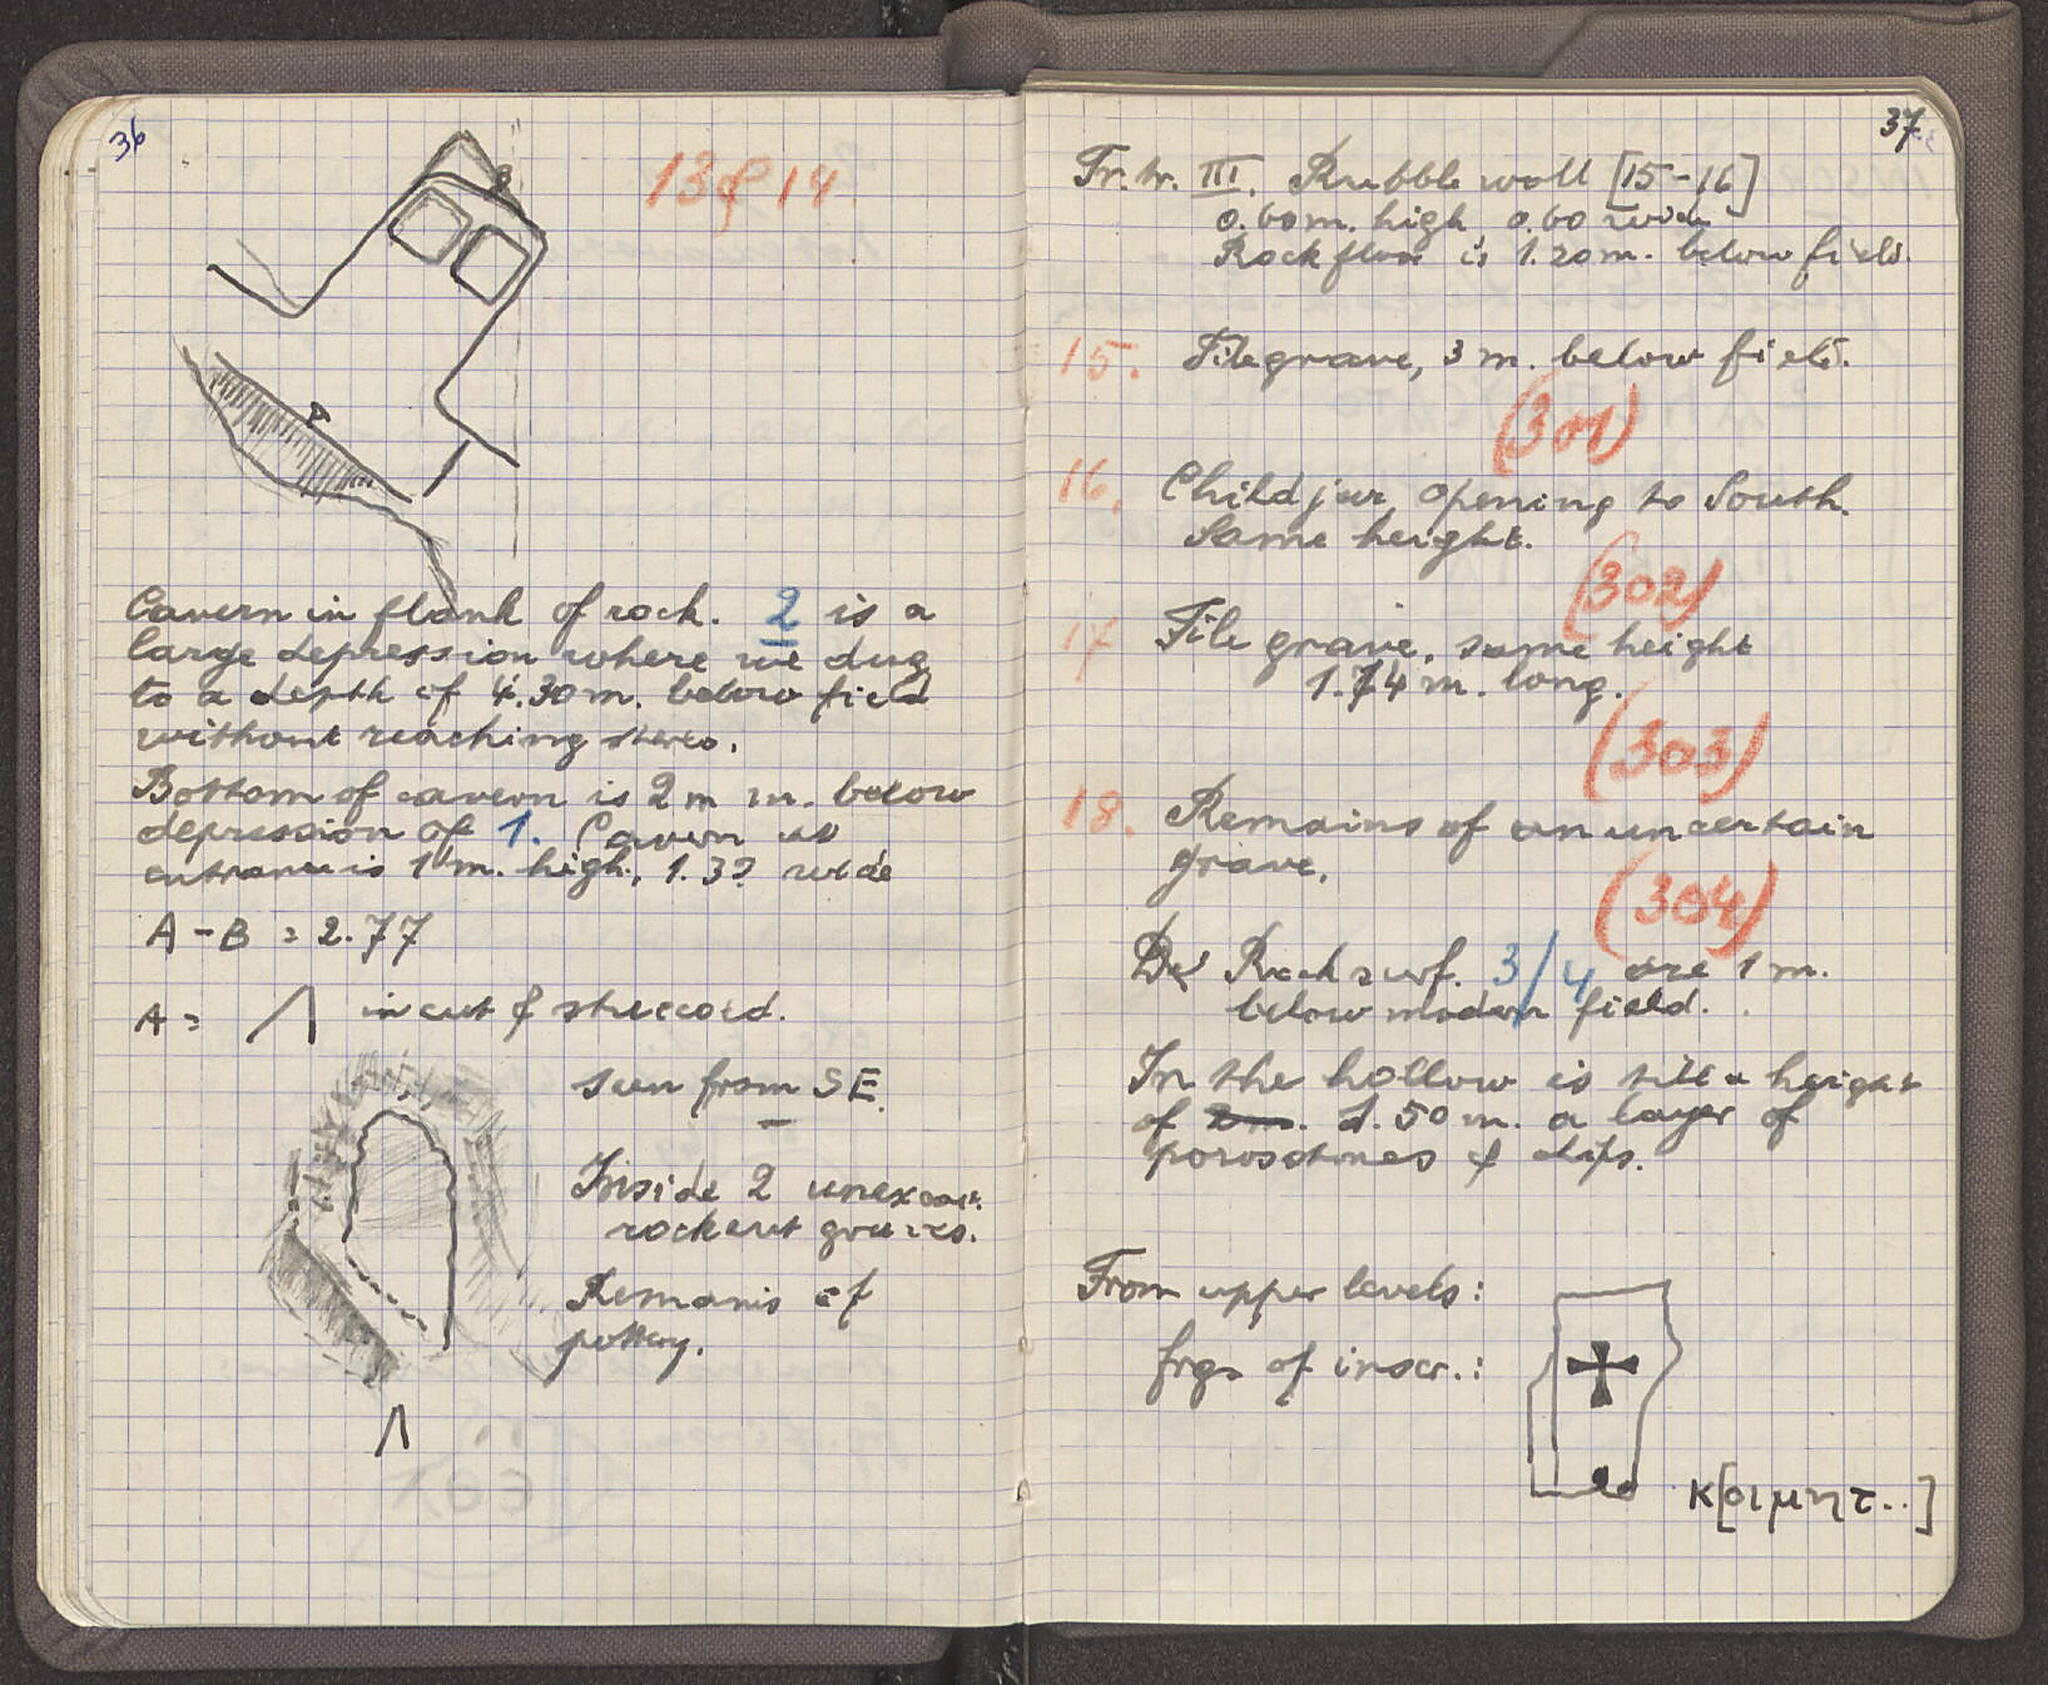 36
13 & 14
B
A
Cavern in flank of rock. 2 is a
large depression where we dug
to a depth of 4.30 m. below field
without reaching stereo.
Bottom of cavern is 2 m m. below
depression of 1. Cavern at
entrance is 1 m. high, 1.3? wide
A - B = 2.77
A = Λ in cut &
seen from SE.
Inside 2 unexcav.
rockcut graves.
Remains of
pottery.
Λ
37
Tr. tr. III. Rubble wall [15-16]
0.60 m. high, 0.60 wide
Rock floor is 1.20 m. below field.
15. Tile grave, 3 m. below field.
(301)
16. Child jar, opening to South.
Same height.
(302)
17 Tile grave, same height
1.74 m. long.
(303)
18. Remains of an uncertain
grave.
(304)
Rock surf. 3/4 are 1 m.
below modern field.
In the hollow is till a height
of 2 m. 1.50 m. a layer of
porosstones & chips.
From upper levels:
frgs of inscr.:
κ[οιμητ..]